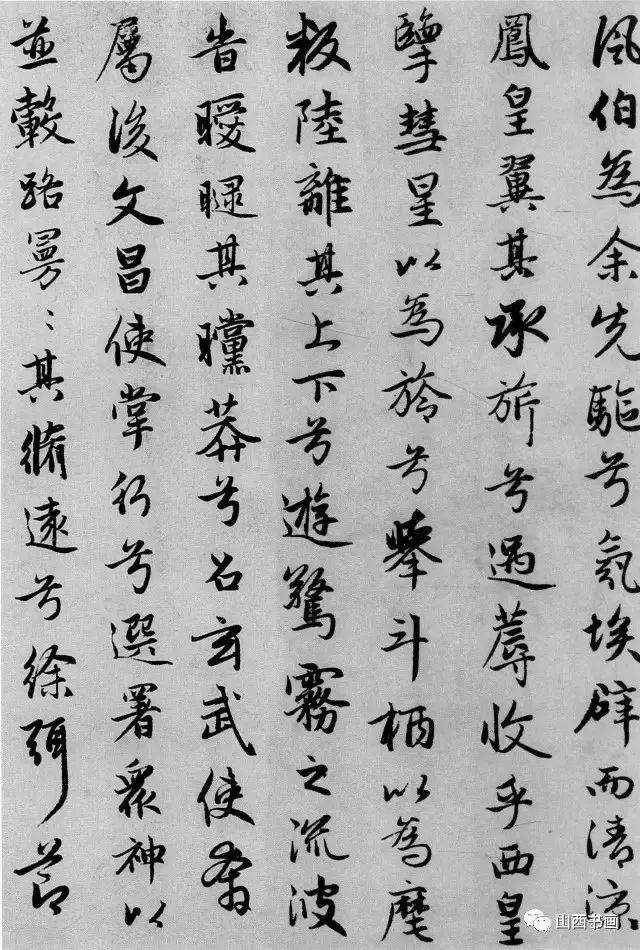 風伯為余先驅兮氛埃辟而清涼
鳳皇翼其承旂兮遇蓐收乎西皇
擥彗星以為旍兮舉斗柄以為麾
叛陸離其上下兮遊驚霧之流波
旹曖曃其曭莽兮召玄武使奔
屬後文昌使掌行兮選署眾神以
並轂路曼〻其脩遠兮徐弭節
山西书画